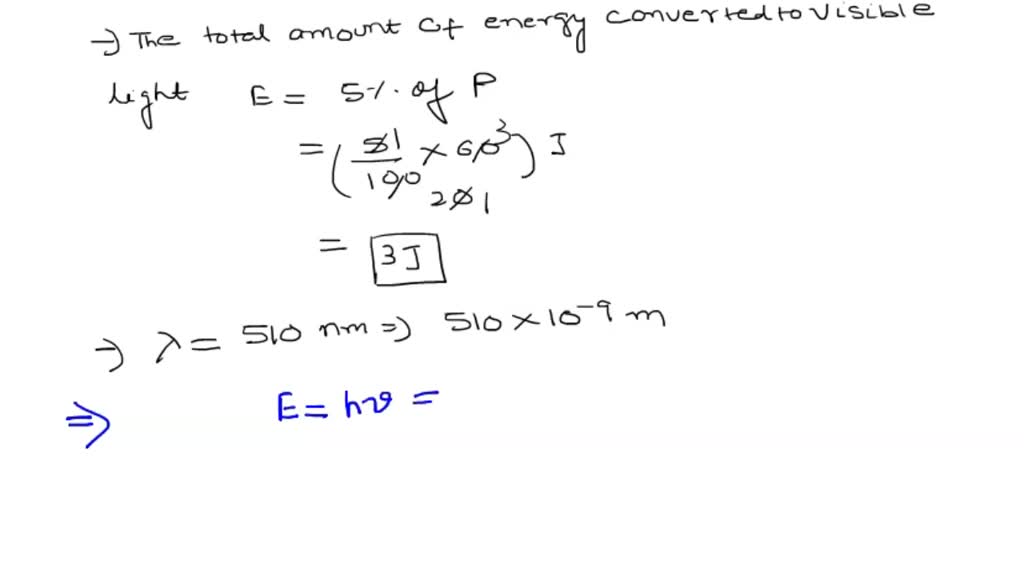 → The total amount of energy converted to visible
light E = 5%. of P
= (51/100 × 60 3) J
20 1
= 3J
→ λ = 510 nm ⇒ 510 × 10⁻⁹ m
⇒ E = hν =